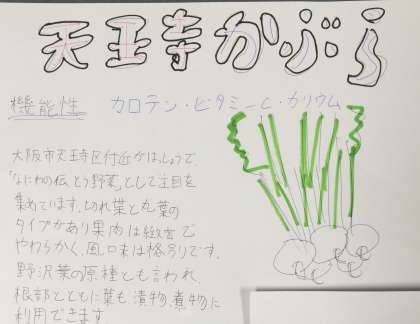 天王寺かぶら
機能性 カロテン・ビタミーC・カリウム
大阪市天王寺区付近がはっしょうで、
「なにわの伝とう野菜」として注目を
集めています。切れ葉と丸葉の
タイプがあり果肉は緻密で
やわらかく、風口味は格別です。
野沢菜の原種とも言われ、
根部とともに葉も、漬物、煮物に
利用できます。